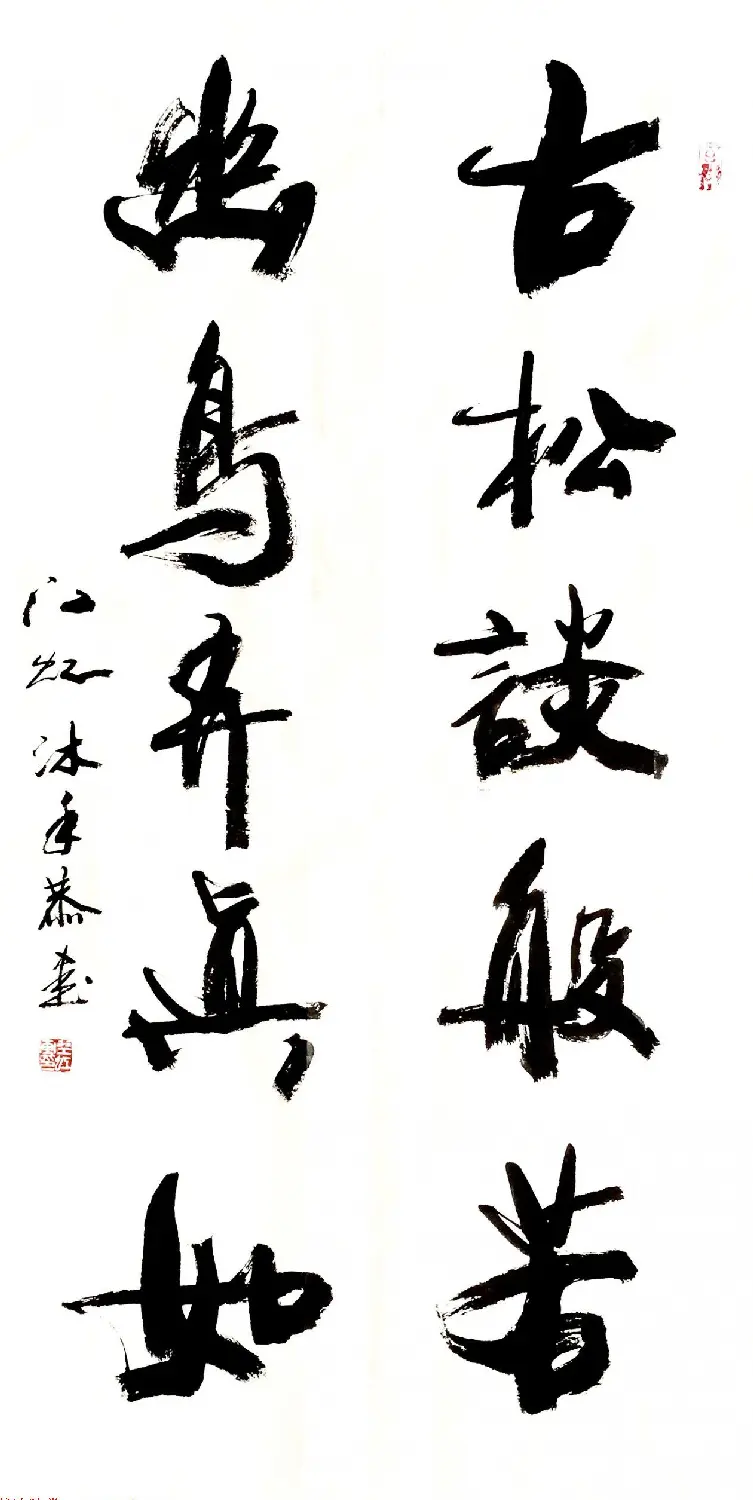 古松談般若
幽鳥弄真如
沐手恭書